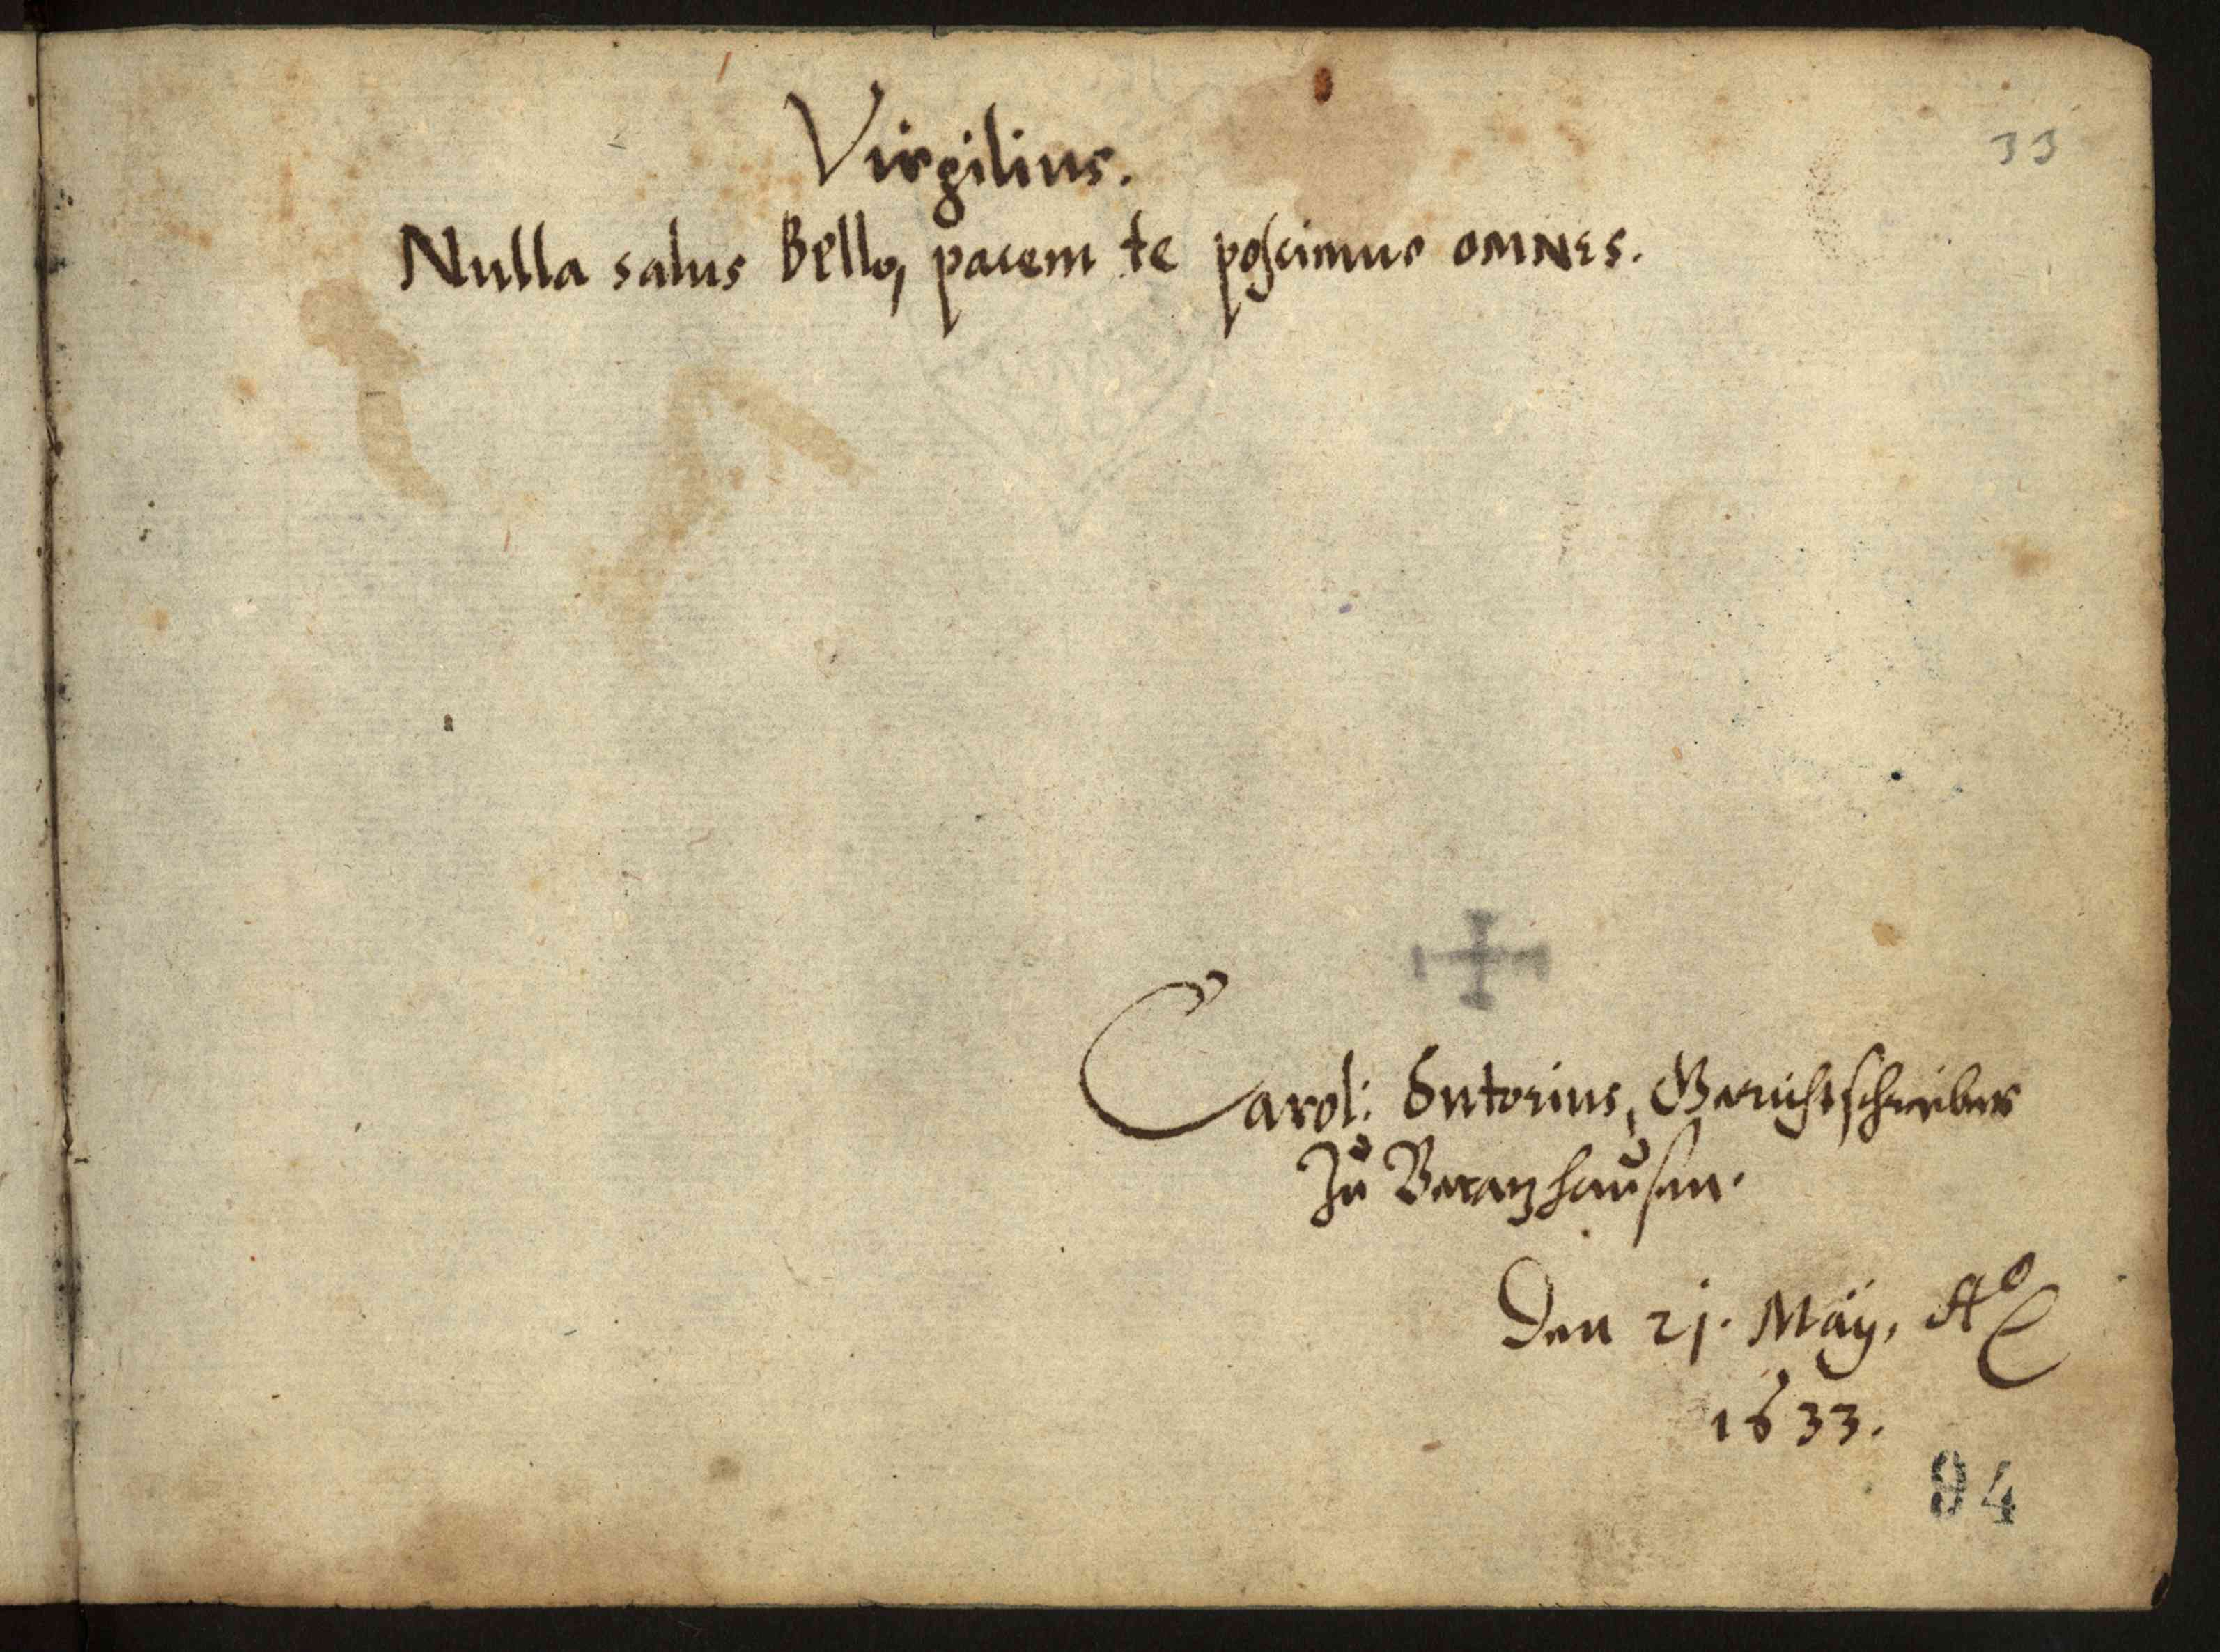 33
Virgilius.
Nulla salus Bello, pacem te poscimus OMNES.
Carol: Sutorius, Gerichtschreiber
Zu Beratzhausen.
Den 21. Maÿ, Ao
1633.
94